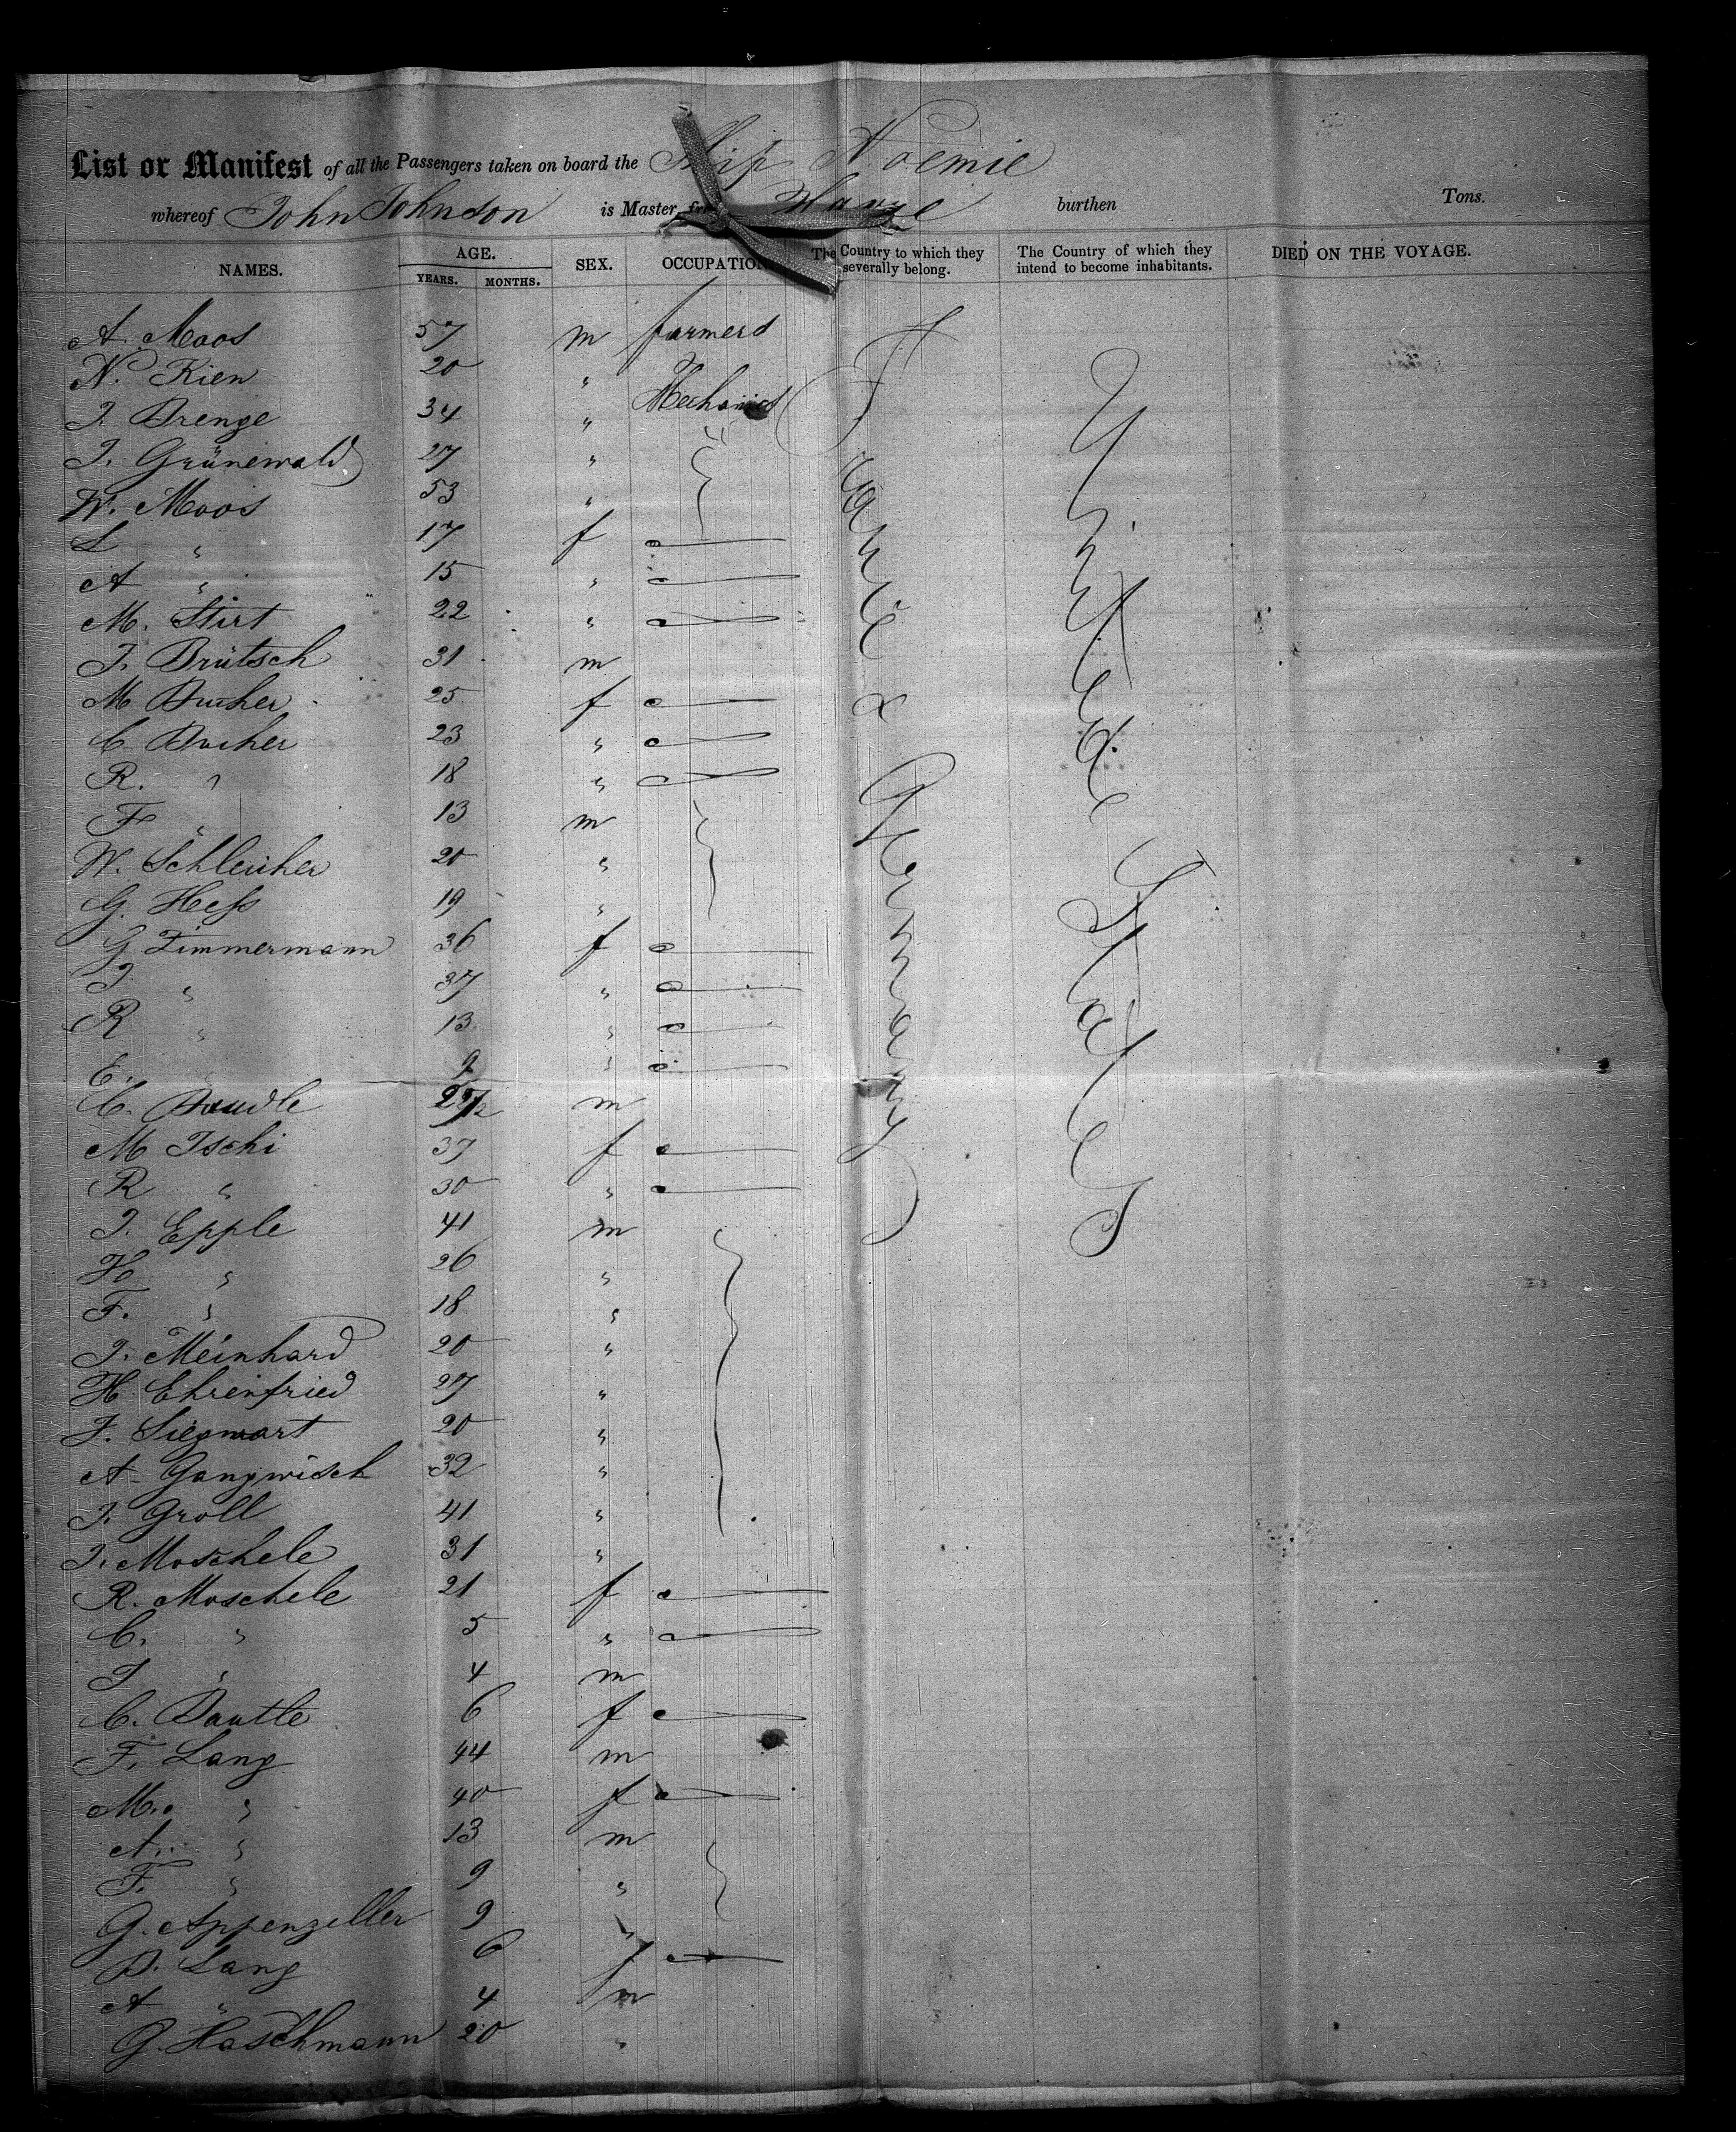 List or Manifest of all the Passengers taken on board the Ship Noemie
whereof John Johnson is Master, from Havre burthen Tons.
NAMES. AGE. YEARS. MONTHS. SEX. OCCUPATION The Country to which they severally belong. The Country of which they intend to become inhabitants. DIED ON THE VOYAGE.
A. Moos 57 m farmers
N. Kien 20 " Mechanics
J. Brenge 34 "
J. Grünewald 27 "
W. Moos 53 "
L " 17 f
A " 15 "
M. Stirt 22 "
J. Brütsch 31 m
M Bucher 25 f
C. Bucher 23 "
R. " 18 "
F " 13 m
W. Schleicher 20 "
G. Heß 19 "
G. Zimmermann 36 f
J " 37 "
R " 13 "
E. " 9 "
C. m
M Tschi 37 f
R " 30 "
J. Epple 41 m
H " 26 "
F. " 18 "
J. Meinhard 20 "
H. Ehrenfried 27 "
F. Siegwart 20 "
A. Gangwisch 32 "
J. Groll 41 "
J. Moschele 31 "
R. Moschele 21 f
C. " 5 "
J " 4 m
C. Bautle 6 f
F. Lang 44 m
M. " 40 f
A. " 13 m
F. " 9 "
G. Appenzeller 9 "
B. Lang 6 f
A " 4 m
G. Haschmann 20 "
France & Germany
United States